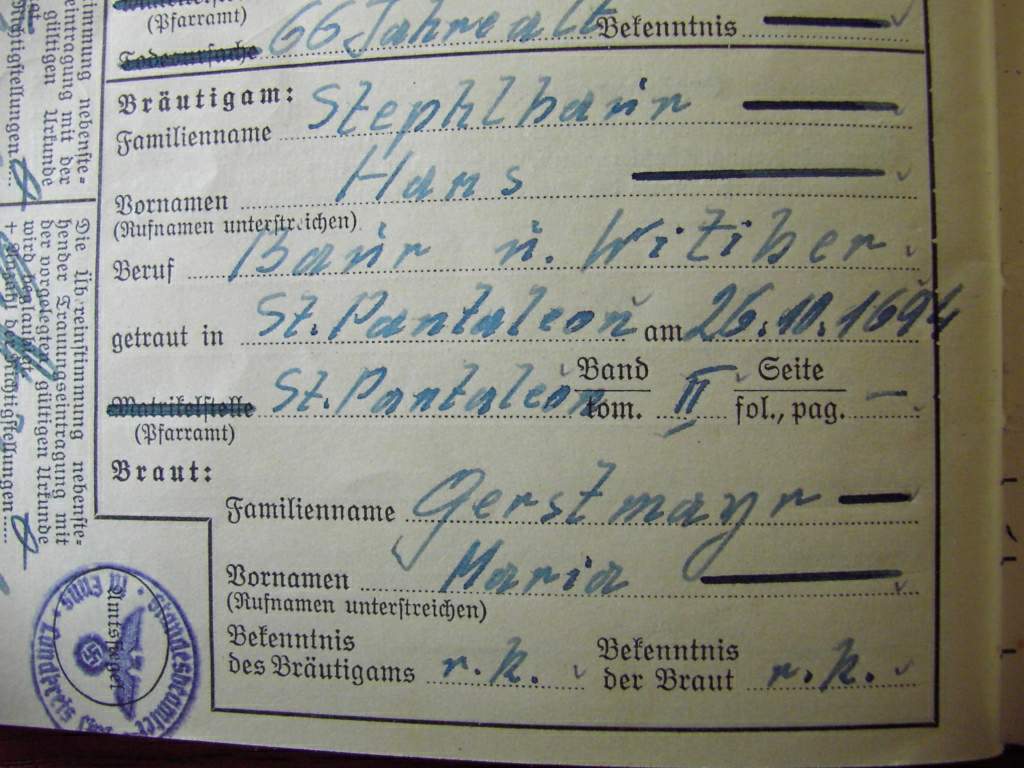 (Pfarramt)
66 Jahre alt Bekenntnis
Todesursache
Bräutigam:
Familienname Stephlbaur
Vornamen Hans
(Rufnamen unterstreichen)
Beruf Baur u. Witiber
getraut in St. Pantaleon am 26.10.1694
Matrikelstelle St. Pantaleon Band II Seite —
(Pfarramt) tom. fol., pag.
Braut:
Familienname Gerstmayr
Vornamen Maria
(Rufnamen unterstreichen)
Bekenntnis des Bräutigams r. k.
Bekenntnis der Braut r. k.
immung nebenste-
eintragung mit der
gültigen Urkunde
Die Übereinstimmung nebenste-
hender Trauungseintragung mit
der vorgelegten gültigen Urkunde
wird beglaubigt
Standesbeamter
Landkreis
Amtssiegel